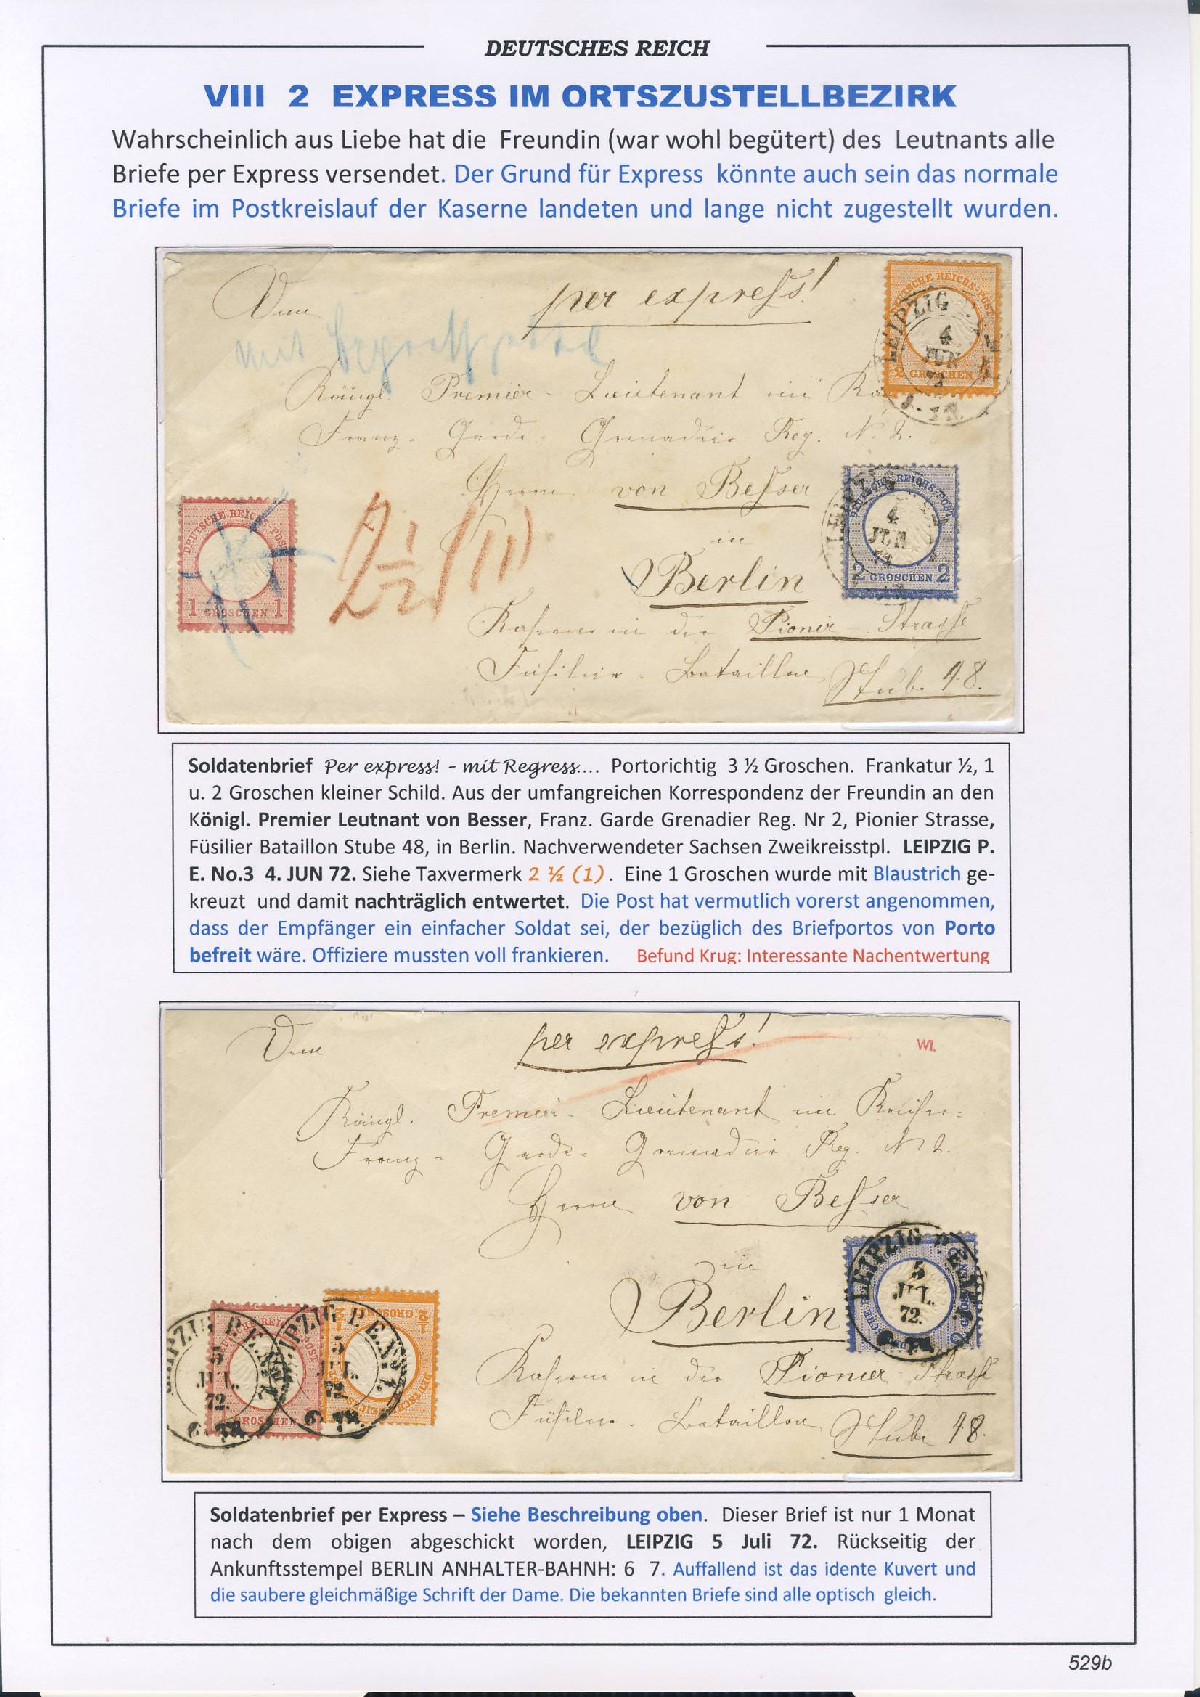 DEUTSCHES REICH
VIII 2 EXPRESS IM ORTSZUSTELLBEZIRK
Wahrscheinlich aus Liebe hat die Freundin (war wohl begütert) des Leutnants alle
Briefe per Express versendet. Der Grund für Express könnte auch sein das normale
Briefe im Postkreislauf der Kaserne landeten und lange nicht zugestellt wurden.
per express!
Dem
mit
Königl. Premier-Lieutenant im
Franz-Garde-Grenadier Reg. N. 2.
Herrn von Besser
in
Berlin
Kaserne in der Pionier-Strasse
Füsilier-Bataillon Stube 48.
DEUTSCHE REICHS-POST
GROSCHEN
LEIPZIG
4
JUN
72
DEUTSCHE REICHS-POST
2 GROSCHEN 2
LEIPZIG
4
JUN
DEUTSCHE REICHS-POST
1 GROSCHEN 1
2 1/2 (1)
Soldatenbrief Per express! - mit Regress.... Portorichtig 3 ½ Groschen. Frankatur ½, 1
u. 2 Groschen kleiner Schild. Aus der umfangreichen Korrespondenz der Freundin an den
Königl. Premier Leutnant von Besser, Franz. Garde Grenadier Reg. Nr 2, Pionier Strasse,
Füsilier Bataillon Stube 48, in Berlin. Nachverwendeter Sachsen Zweikreisstpl. LEIPZIG P.
E. No.3 4. JUN 72. Siehe Taxvermerk 2 ½ (1). Eine 1 Groschen wurde mit Blaustrich ge-
kreuzt und damit nachträglich entwertet. Die Post hat vermutlich vorerst angenommen,
dass der Empfänger ein einfacher Soldat sei, der bezüglich des Briefportos von Porto
befreit wäre. Offiziere mussten voll frankieren. Befund Krug: Interessante Nachentwertung
per express!
Dem
WL
Königl. Premier-Lieutenant im Kaiser-
Franz-Garde-Grenadier Reg. N 2.
Herrn von Besser
in
Berlin
Kaserne in der Pionier-Strasse
Füsilier-Bataillon Stube 48.
LEIPZIG P.E.
5
JUL.
72.
GROSCHEN
LEIPZIG P.E.
5
JUL.
72.
GROSCHEN
LEIPZIG P.E.
5
JUL.
72.
Soldatenbrief per Express – Siehe Beschreibung oben. Dieser Brief ist nur 1 Monat
nach dem obigen abgeschickt worden, LEIPZIG 5 Juli 72. Rückseitig der
Ankunftsstempel BERLIN ANHALTER-BAHNH: 6 7. Auffallend ist das idente Kuvert und
die saubere gleichmäßige Schrift der Dame. Die bekannten Briefe sind alle optisch gleich.
529b